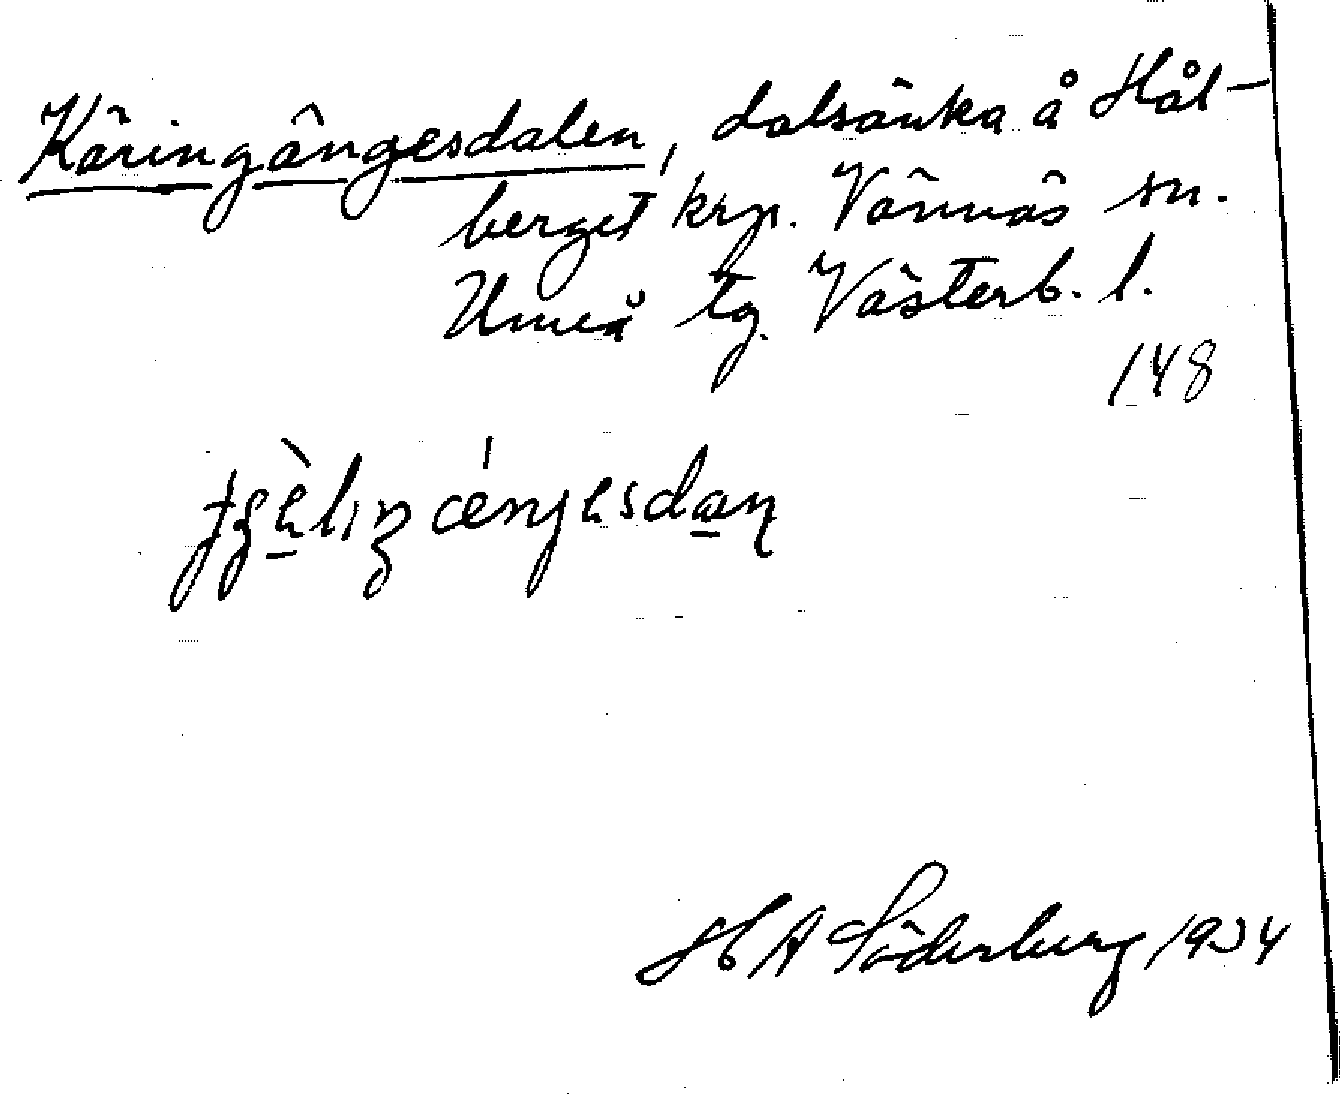 Käringängesdalen, dalsänka å Hål-
berget krp. Vännäs sn.
Umeå tg. Västerb. l.
148
H A Söderberg 1934